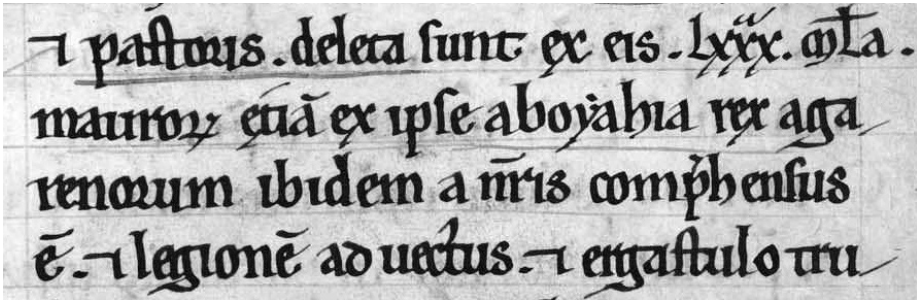 ⁊ pastoris. deleta sunt ex eis. lxxxa. ml̅a.
mauroꝝ etiā ex ipse aboyahia rex aga
renorum ibidem a nr̅is comp̾hensus
ē. ⁊ legionē aduectus. ⁊ ergastulo tru